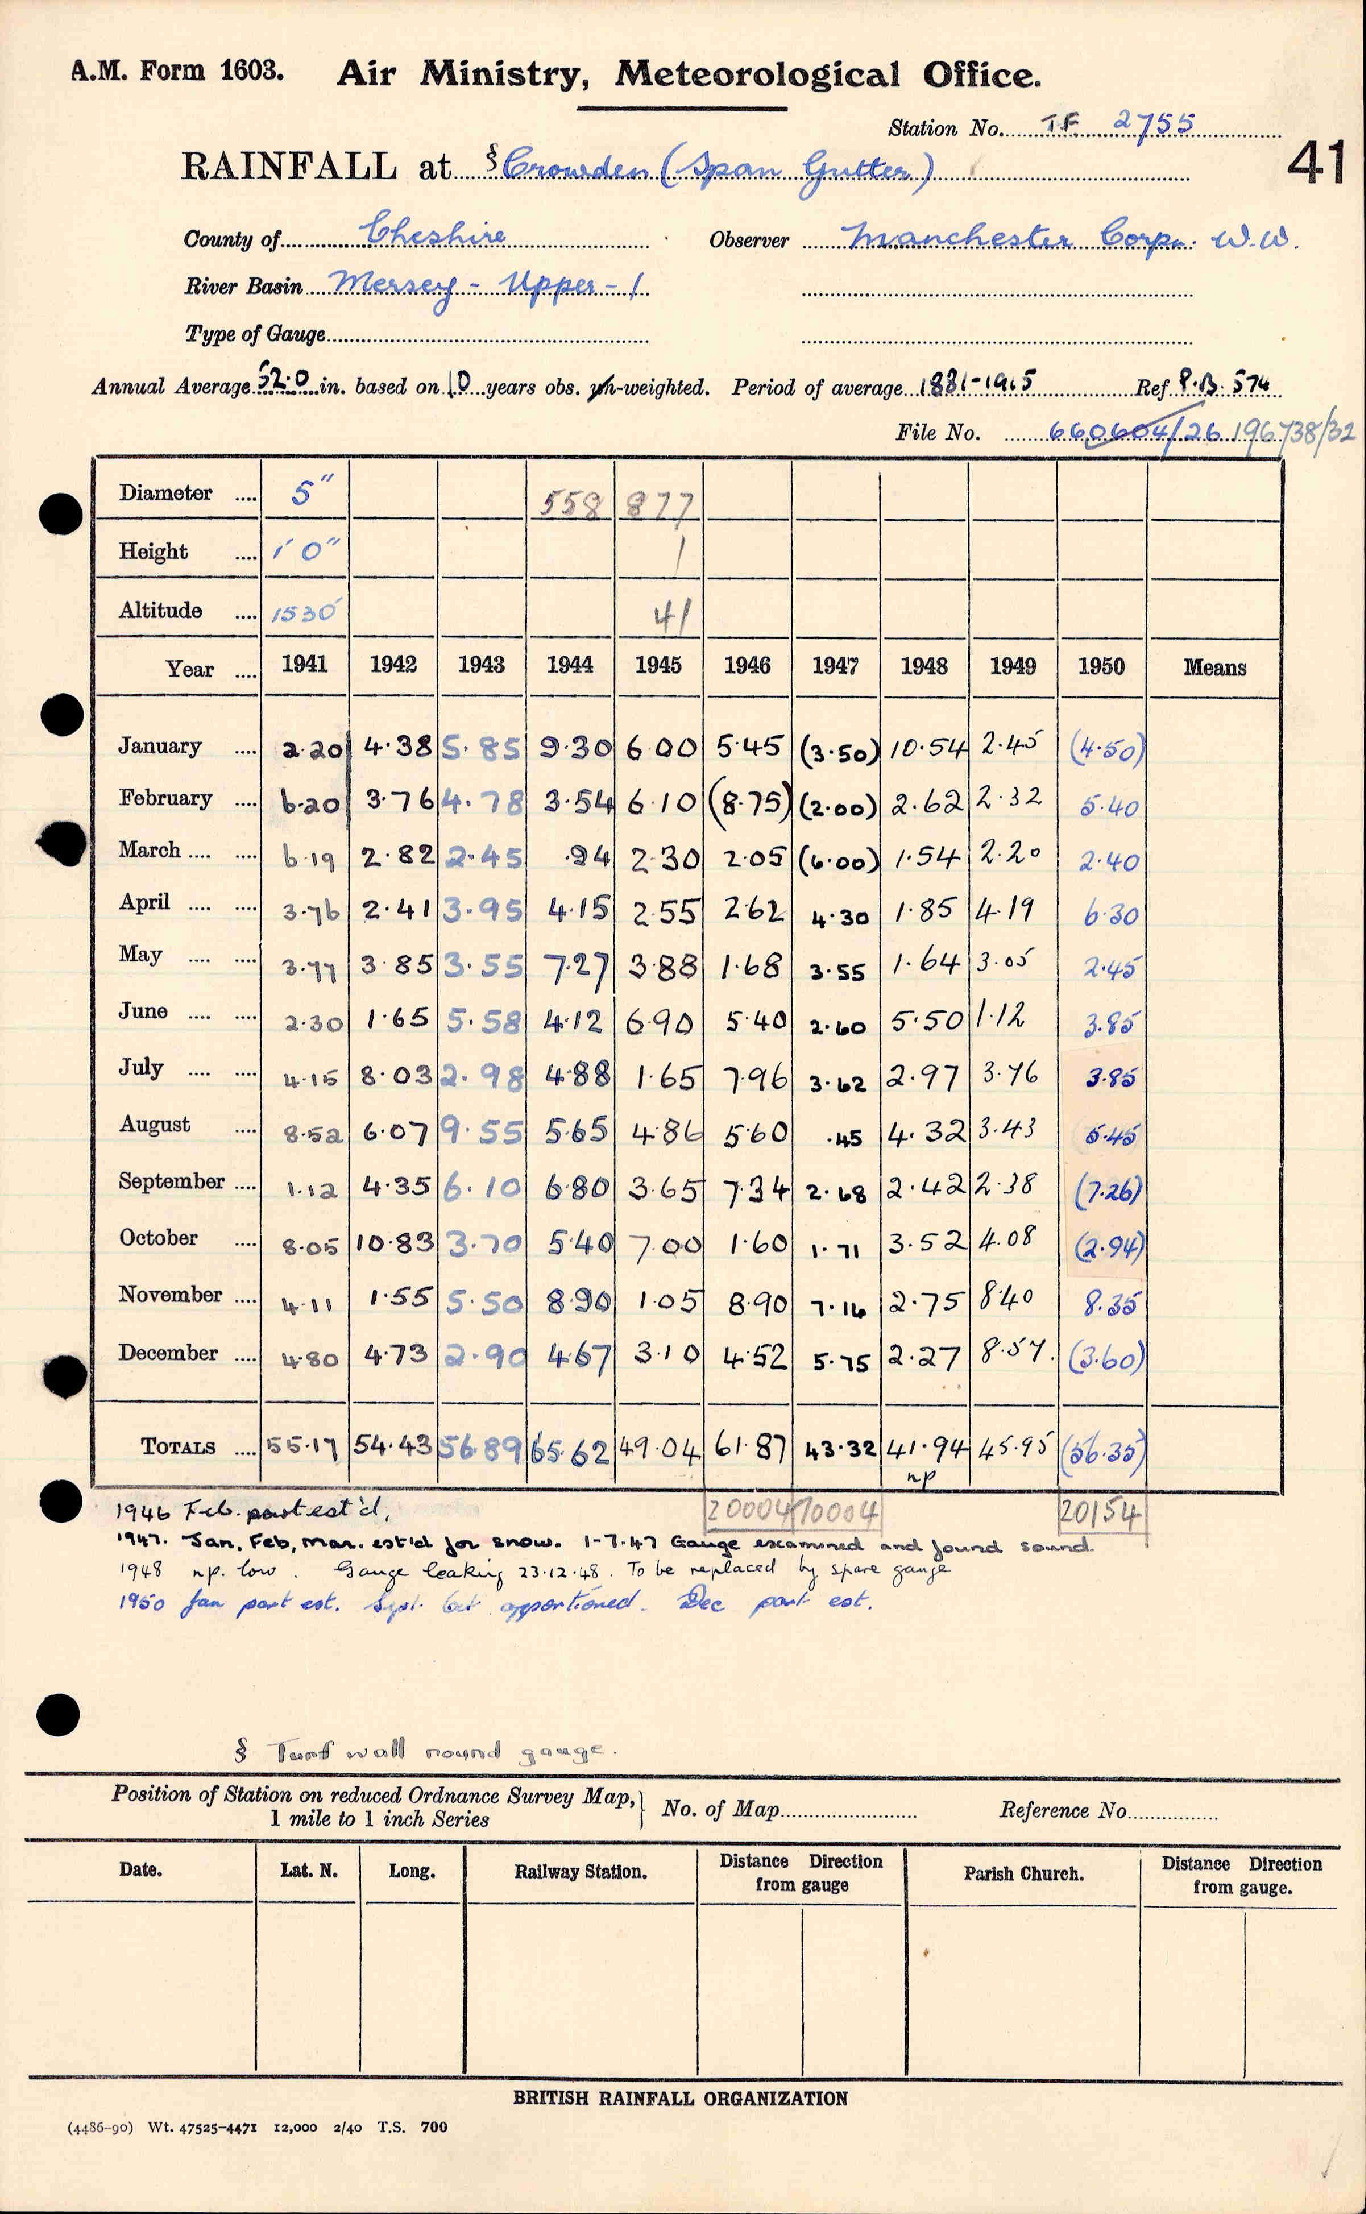 A.M. Form 1603. Air Ministry, Meteorological Office.
Station No. TF 2755
41
RAINFALL at § Crowden (Span Gutter)
County of Cheshire Observer Manchester Corpn. W.W.
River Basin Mersey - Upper - 1
Type of Gauge
Annual Average 52.0 in. based on 10 years obs. un-weighted. Period of average 1881-1915 Ref P.B. 574
File No. 660604/26 196738/32
Diameter .... 5" 558 877
Height .... 1' 0" 1
Altitude .... 1530 41
Year .... 1941 1942 1943 1944 1945 1946 1947 1948 1949 1950 Means
January .... 2.20 4.38 5.85 9.30 6.00 5.45 (3.50) 10.54 2.45 (4.50)
February .... 6.20 3.76 4.78 3.54 6.10 (8.75) (2.00) 2.62 2.32 5.40
March .... .... 6.19 2.82 2.45 .94 2.30 2.05 (6.00) 1.54 2.20 2.40
April .... .... 3.76 2.41 3.95 4.15 2.55 2.62 4.30 1.85 4.19 6.30
May .... .... 3.77 3.85 3.55 7.27 3.88 1.68 3.55 1.64 3.05 2.45
June .... .... 2.30 1.65 5.58 4.12 6.90 5.40 2.60 5.50 1.12 3.85
July .... .... 4.15 8.03 2.98 4.88 1.65 7.96 3.62 2.97 3.76 3.85
August .... 8.52 6.07 9.55 5.65 4.86 5.60 .45 4.32 3.43 5.45
September .... 1.12 4.35 6.10 6.80 3.65 7.34 2.68 2.42 2.38 (7.26)
October .... 8.05 10.83 3.70 5.40 7.00 1.60 1.71 3.52 4.08 (2.94)
November .... 4.11 1.55 5.50 8.90 1.05 8.90 7.16 2.75 8.40 8.35
December .... 4.80 4.73 2.90 4.67 3.10 4.52 5.75 2.27 8.57. (3.60)
TOTALS .... 55.17 54.43 56.89 65.62 49.04 61.87 43.32 41.94 45.95 (56.35)
np
1946 Feb. part est'd. 20004 10004 20154
1947. Jan, Feb, Mar. est'd for snow. 1-7-47 Gauge examined and found sound.
1948 np. low. Gauge leaking 23.12.48. To be replaced by spare gauge
1950 Jan part est. Sept. Oct apportioned. Dec part est.
§ Turf wall round gauge.
Position of Station on reduced Ordnance Survey Map, 1 mile to 1 inch Series } No. of Map Reference No
Date. Lat. N. Long. Railway Station. Distance Direction from gauge Parish Church. Distance Direction from gauge.
BRITISH RAINFALL ORGANIZATION
(4486-90) Wt. 47525-4471 12,000 2/40 T.S. 700